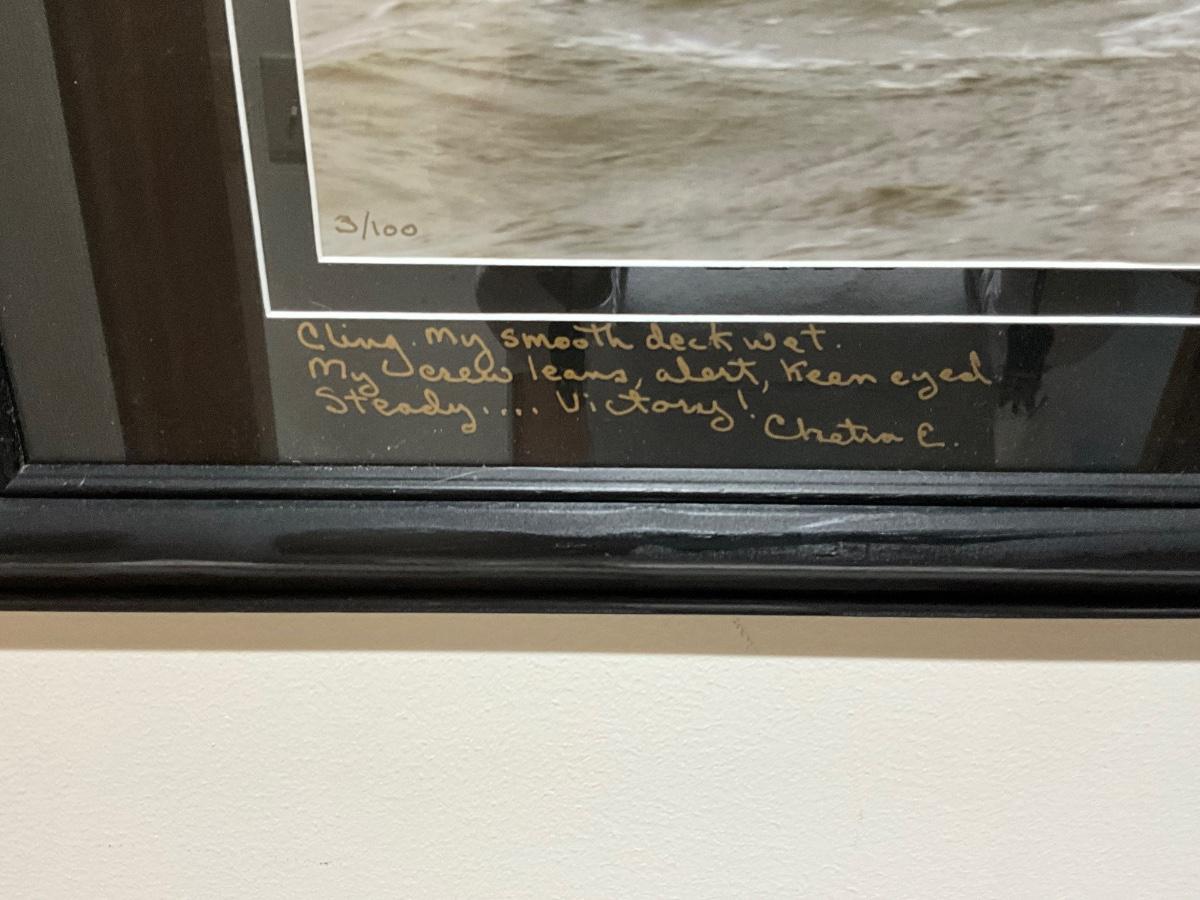 3/100
Cling. My smooth deck wet.
My crew leans, alert, keen eyed.
Steady.... Victory!
Chetra E.